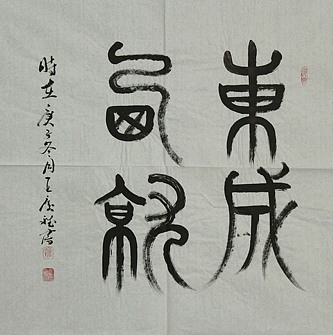 東成
西就
時在庚子冬月王